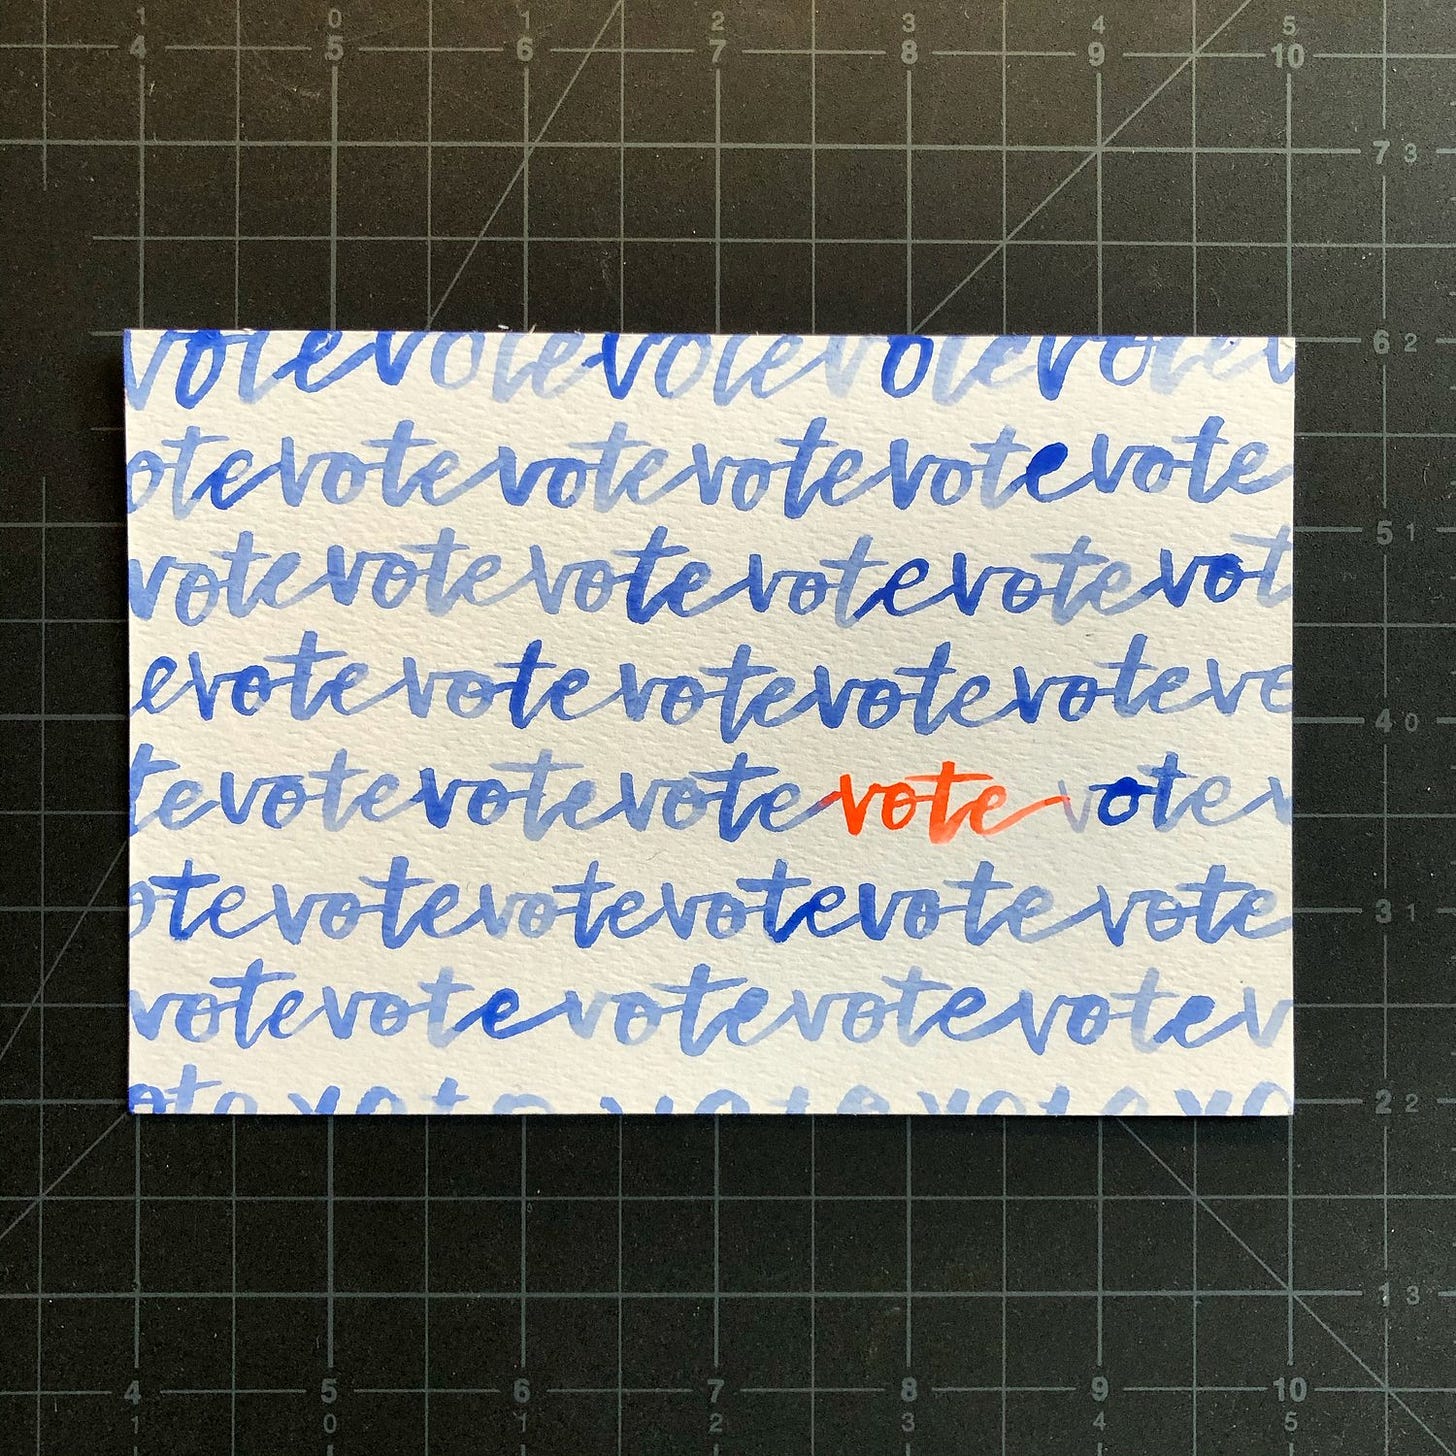 0 1 2 3 4 5
4 5 6 7 8 9 10
7 3
votevotevotevotevotev
6 2
otevotevotevotevotevote
5 1
votevotevotevotevotevot
evotevotevotevotevoteve
4 0
tevotevotevotevote votev
otevotevotevotevotevote
3 1
votevotevotevotevotev
ote vote vote vote vo
2 2
1 3
4 5 6 7 8 9 10
1 0 1 2 3 4 5